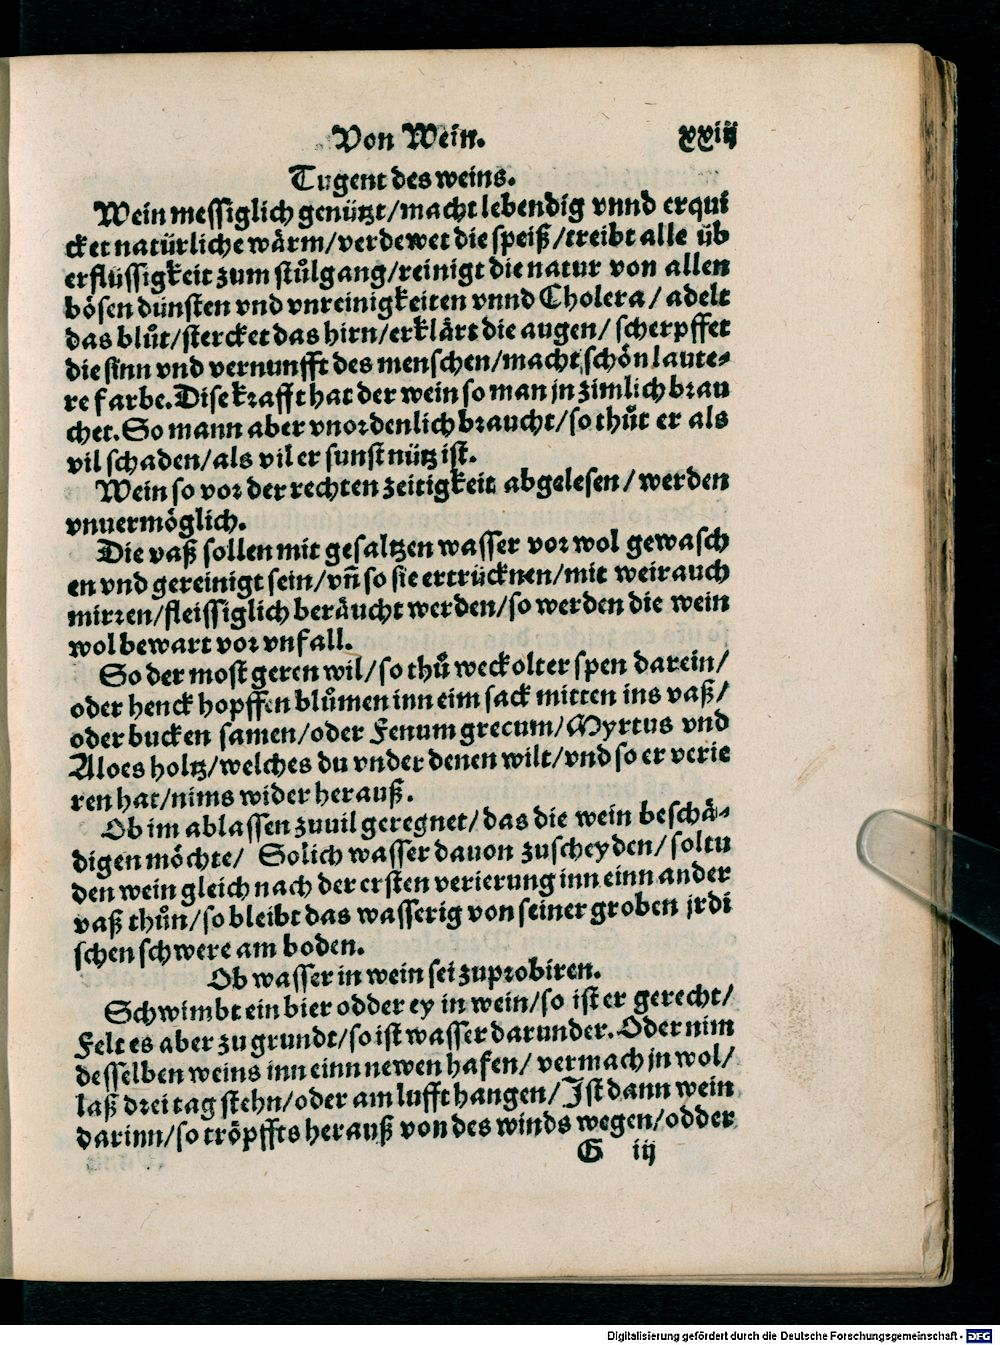 Von Wein. xxiij
Tugent des weins.
Wein messiglich genützt/macht lebendig vnnd erqui
cket natürliche wärm/verdewet die speiß/treibt alle üb
erflüssigkeit zum stůlgang/reinigt die natur von allen
bösen dünsten vnd vnreinigkeiten vnnd Cholera/ adelt
das blůt/stercket das hirn/erklärt die augen/ scherpffet
die sinn vnd vernunfft des menschen/macht schön laute-
re farbe. Dise krafft hat der wein so man jn zimlich brau
chet. So mann aber vnordenlich braucht/so thůt er als
vil schaden/als vil er sunst nütz ist.
Wein so vor der rechten zeitigkeit abgelesen/ werden
vnuermöglich.
Die vaß sollen mit gesaltzen wasser vor wol gewasch
en vnd gereinigt sein/vñ so sie ertrücknen/mit weirauch
mirren/fleissiglich beräucht werden/so werden die wein
wol bewart vor vnfall.
So der most geren wil/so thů weckolter spen darein/
oder henck hopffen blůmen inn eim sack mitten ins vaß/
oder bucken samen/oder Fenum grecum/Myrtus vnd
Aloes holtz/welches du vnder denen wilt/vnd so er verie
ren hat/nims wider herauß.
Ob im ablassen zuuil geregnet/das die wein beschä-
digen möchte/ Solich wasser dauon zuscheyden/soltu
den wein gleich nach der ersten verierung inn einn ander
vaß thůn/so bleibt das wasserig von seiner groben jrdi
schen schwere am boden.
Ob wasser in wein sei zuprobiren.
Schwimbt ein bier odder ey in wein/so ist er gerecht/
Felt es aber zu grundt/so ist wasser darunder. Oder nim
desselben weins inn einn newen hafen/ vermach jn wol/
laß drei tag stehn/oder am lufft hangen/Ist dann wein
darinn/so tröpffts herauß von des winds wegen/odder
G iij
Digitalisierung gefördert durch die Deutsche Forschungsgemeinschaft - DFG